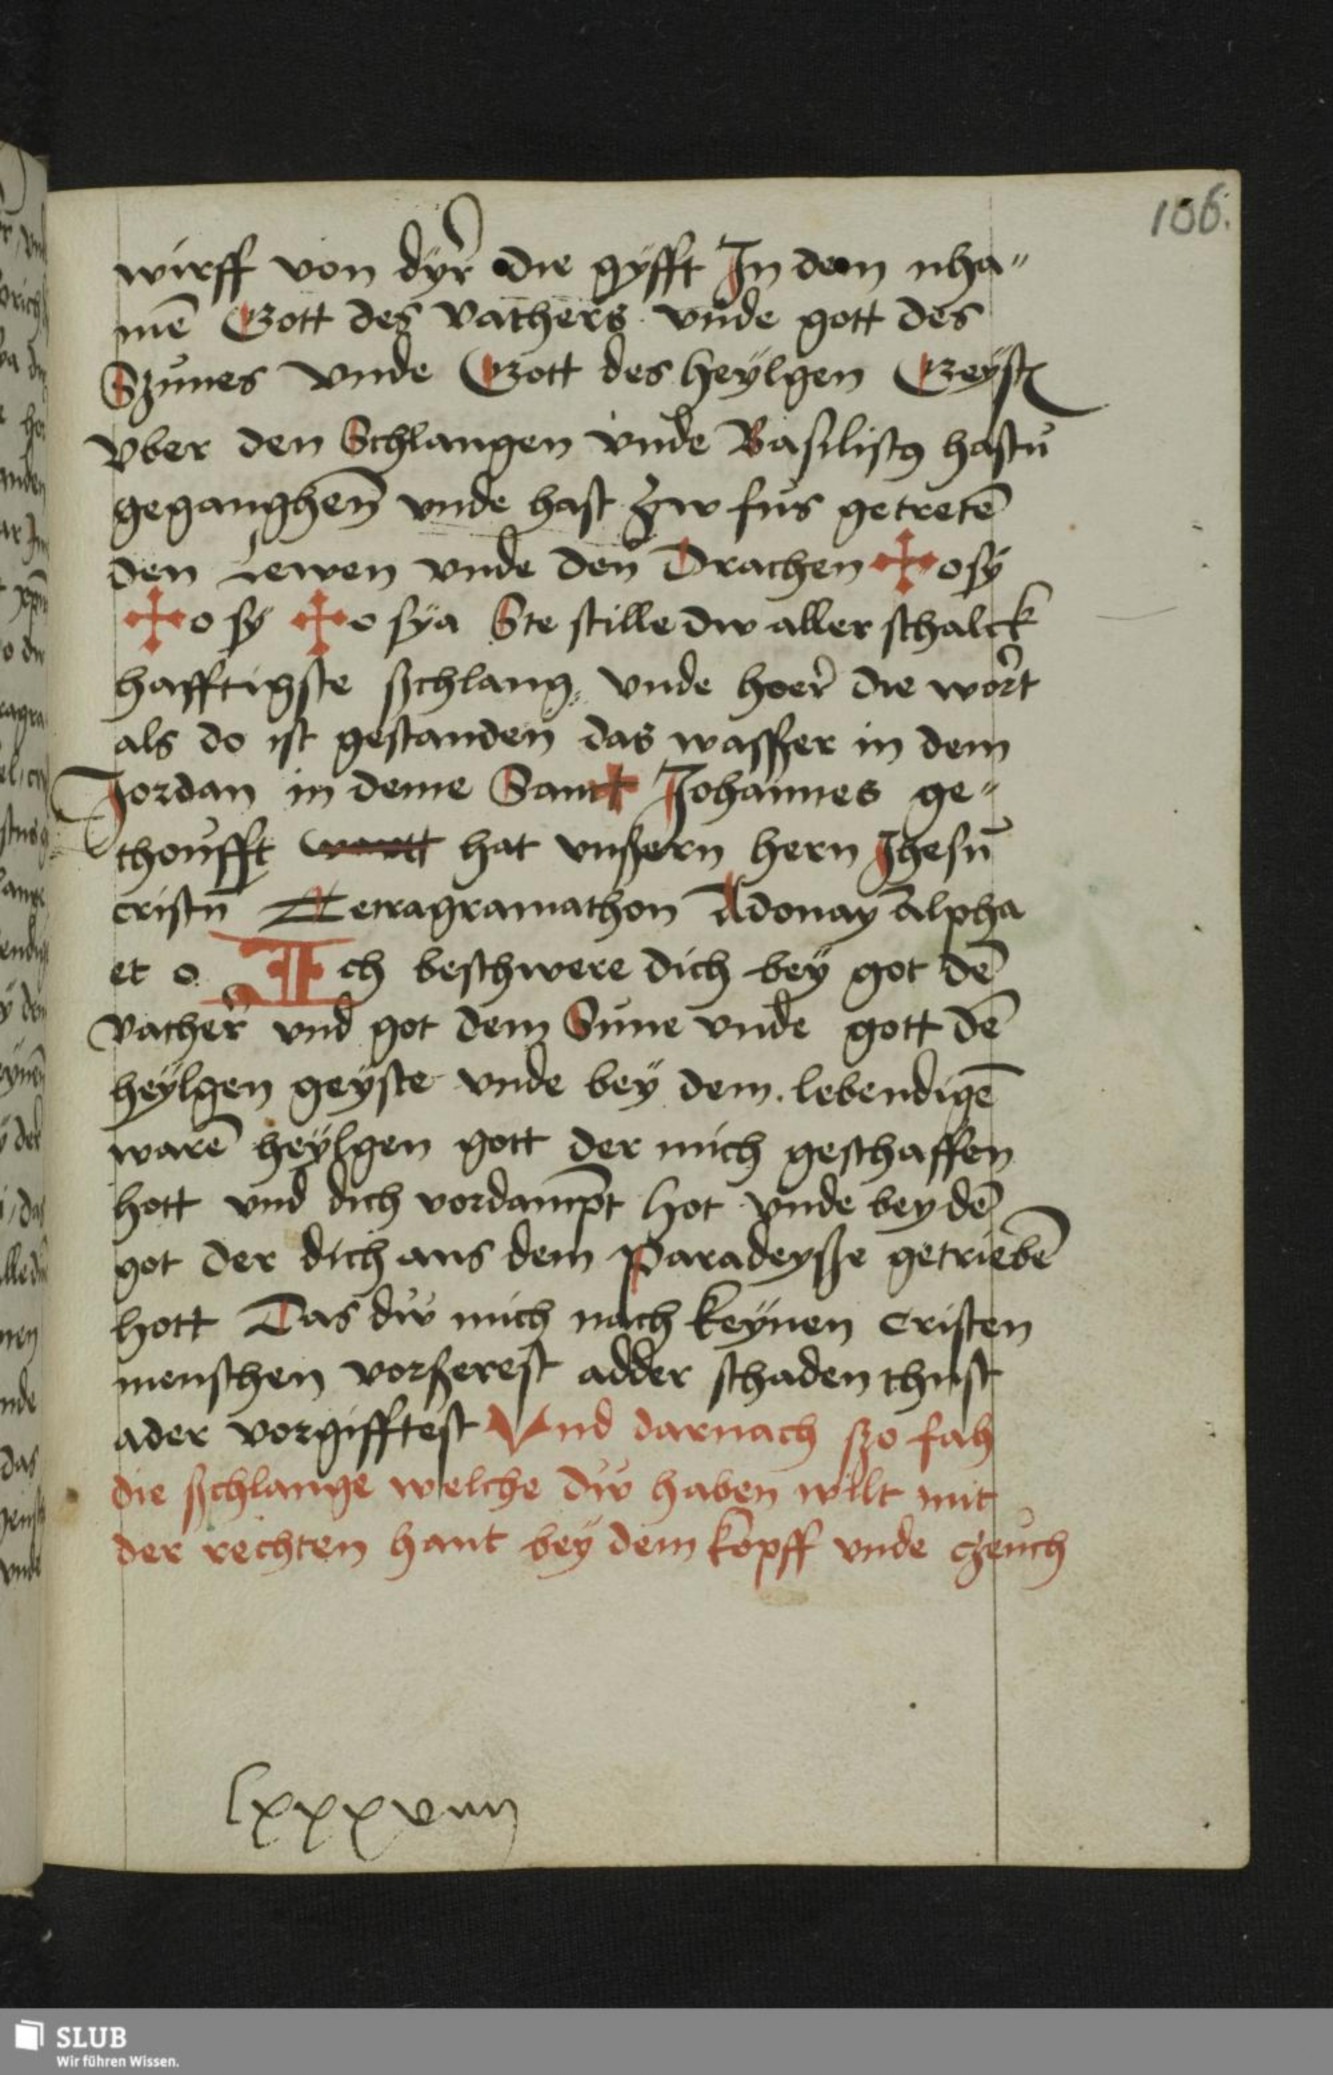 106.
wirff von dÿr die gÿfft In dem nha=
mē Gott des vathers vnde gott des
Szunes vnde Gott des heÿlgen Geÿst
vber den Schlangen vnde Basiliscū hastu
geganghen vnde hast zw fus getretē
den Lewen vnde den Drachen ✠ osÿ
✠ o sÿ ✠ o sÿa Ste stille dw aller schalck
hafftigste schlang vnde hoer die wort
als do ist gestanden das wasszer in dem
Jordan in deme Sanct Johannes ge=
thoufft hat vnszern hern Jhesu
cristū Tetragramathon Adonay Alpha
et o Ich beschwere dich beÿ got dē
vather vnd got dem Sune vnde gott dē
heÿlgen geÿste vnde beÿ dem lebendigē
warē heÿlgen gott der mich geschaffen
hott vnd dich vordampt hot vnde bey dē
got der dich aus dem Paradeysze getriebē
hott Das dw mich nach keÿnen cristen
menschen vorszerest adder schaden thust
ader vorgifftest Vnd darnach szo fah
die schlange welche dw haben wilt mit
der rechten hant beÿ dem kopff vnde czeuch
lxxxviiij
SLUB
Wir führen Wissen.